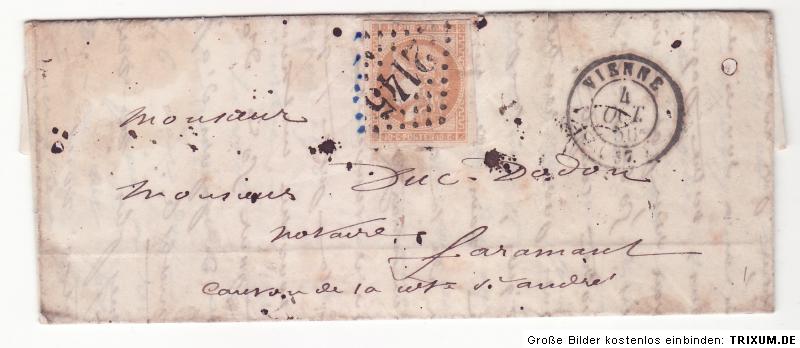 2145
VIENNE
4
OCT.
37
Monsieur
Monsieur Duc-Dodon
notaire. Faramant
Canton de la côte St andré
Große Bilder kostenlos einbinden: TRIXUM.DE